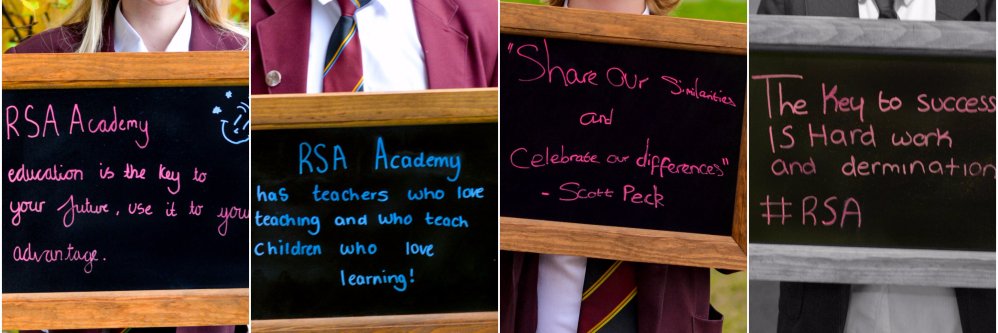 RSA Academy
education is the key to
your future, use it to your
advantage.
RSA Academy
has teachers who love
teaching and who teach
children who love
learning!
"Share our similarities
and
Celebrate our differences"
- Scott Peck
The Key to success
IS Hard work
and dermination
#RSA